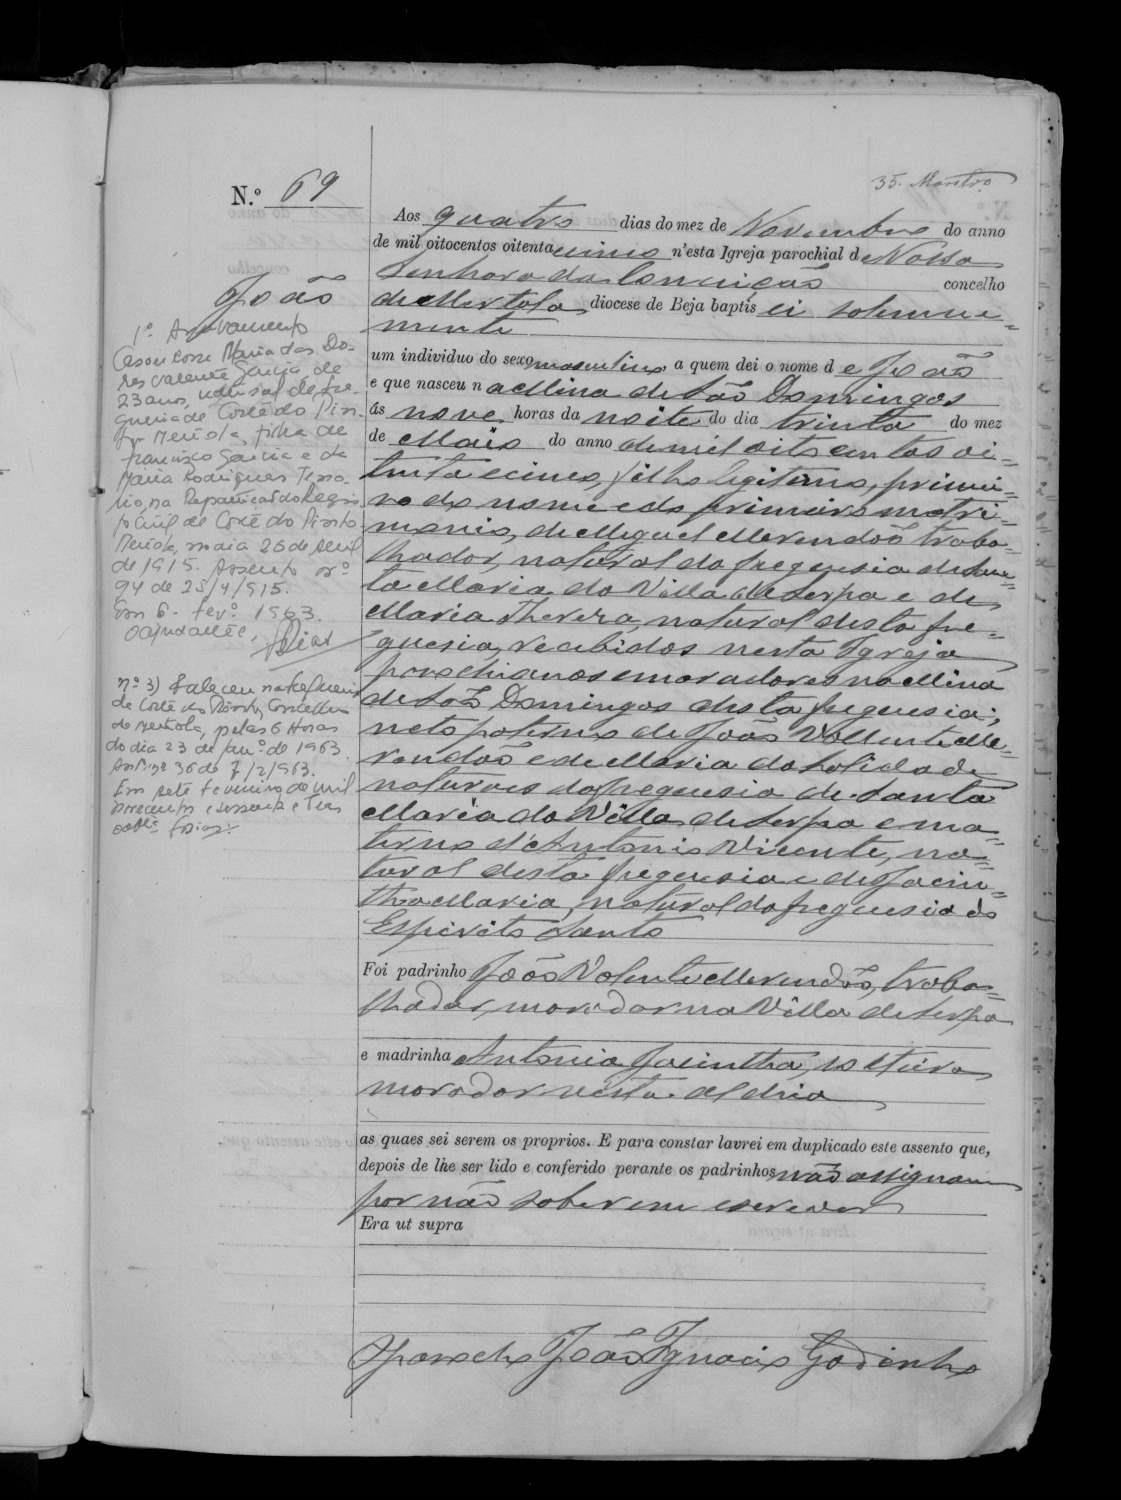 N.º 69
João
Aos quatro dias do mez de Novembro do anno
de mil oitocentos oitenta cinco n'esta Igreja parochial de Nossa
Senhora da Conceição concelho
de Mertola, diocese de Beja baptisei solemne=
mente
um individuo do sexo masculino, a quem dei o nome de João
e que nasceu na Mina de São Domingos
ás nove horas da noite do dia trinta do mez
de Maio do anno de mil oito centos oi=
tenta e cinco, filho legitimo, primei=
ro do nome e do primeiro matri=
monio, de Miguel Merendão traba=
lhador, natural da freguesia de San=
ta Maria da Villa de Serpa e de
Maria Thereza, natural desta fre=
guesia, recebidos nesta Igreja
parochianos e moradores na Mina
de São Domingos desta freguesia;
neto paterno de João Vallente Me=
rendão e de Maria da Solidade
naturaes da freguesia de Santa
Maria da Villa de Serpa e ma=
terno d'Antonio Vicente, na=
tural desta freguesia e de Jacin=
tha Maria, natural da freguesia do
Espirito Santo
Foi padrinho João Valente Merendão, traba=
lhador, morador na Villa de Serpa
e madrinha Antonia Jacintha, solteira
morador nesta Aldeia
as quaes sei serem os proprios. E para constar lavrei em duplicado este assento que,
depois de lhe ser lido e conferido perante os padrinhos, não assignam
por não saberem escrever
Era ut supra
O parocho João Ignacio Godinho
1.º Averbamento
Casou com Maria das Do-
res Valente Garcia de
23 anos, natural da fre-
guesia de Corte do Pin-
to Mertola, filha de
Francisco Garcia e de
Maria Rodrigues
na Repartição do Regis
to Civil de Corte do Pinto
Mertola, no dia 25 de Abril
de 1915. Assento nº
94 de 25/4/915.
Em 6. Fev.º 1963.
O ajudante,
nº 3) Faleceu na freguesia
de Corte do Pinto, Concelho
de Mertola, pelas 6 horas
do dia 23 de Jan.º de 1963
36 de 7/2/963.
Em sete Fevereiro de mil
novecentos e sessenta e tres